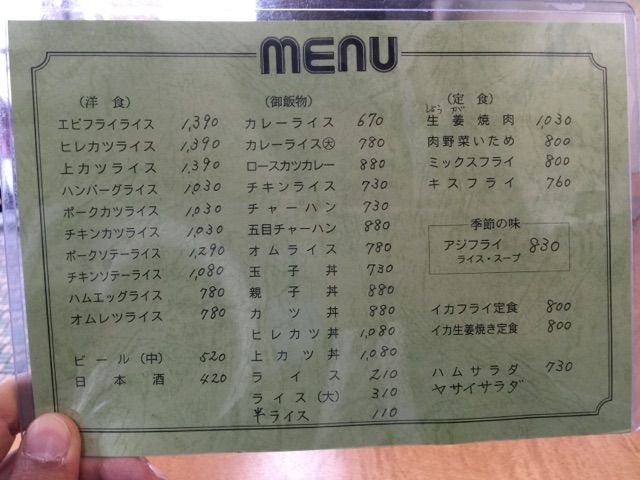 MENU
(洋食)
エビフライライス 1,390
ヒレカツライス 1,390
上カツライス 1,390
ハンバーグライス 1,030
ポークカツライス 1,030
チキンカツライス 1,030
ポークソテーライス 1,290
チキンソテーライス 1,080
ハムエッグライス 780
オムレツライス 780
ビール(中) 520
日本酒 420
(御飯物)
カレーライス 670
カレーライス大 780
ロースカツカレー 880
チキンライス 730
チャーハン 730
五目チャーハン 880
オムライス 780
玉子丼 730
親子丼 880
カツ丼 880
ヒレカツ丼 1,080
上カツ丼 1,080
ライス 210
ライス(大) 310
半ライス 110
(定食)
しょうが
生姜焼肉 1,030
肉野菜いため 800
ミックスフライ 800
キスフライ 760
季節の味
アジフライ 830
ライス・スープ
イカフライ定食 800
イカ生姜焼き定食 800
ハムサラダ 730
ヤサイサラダ